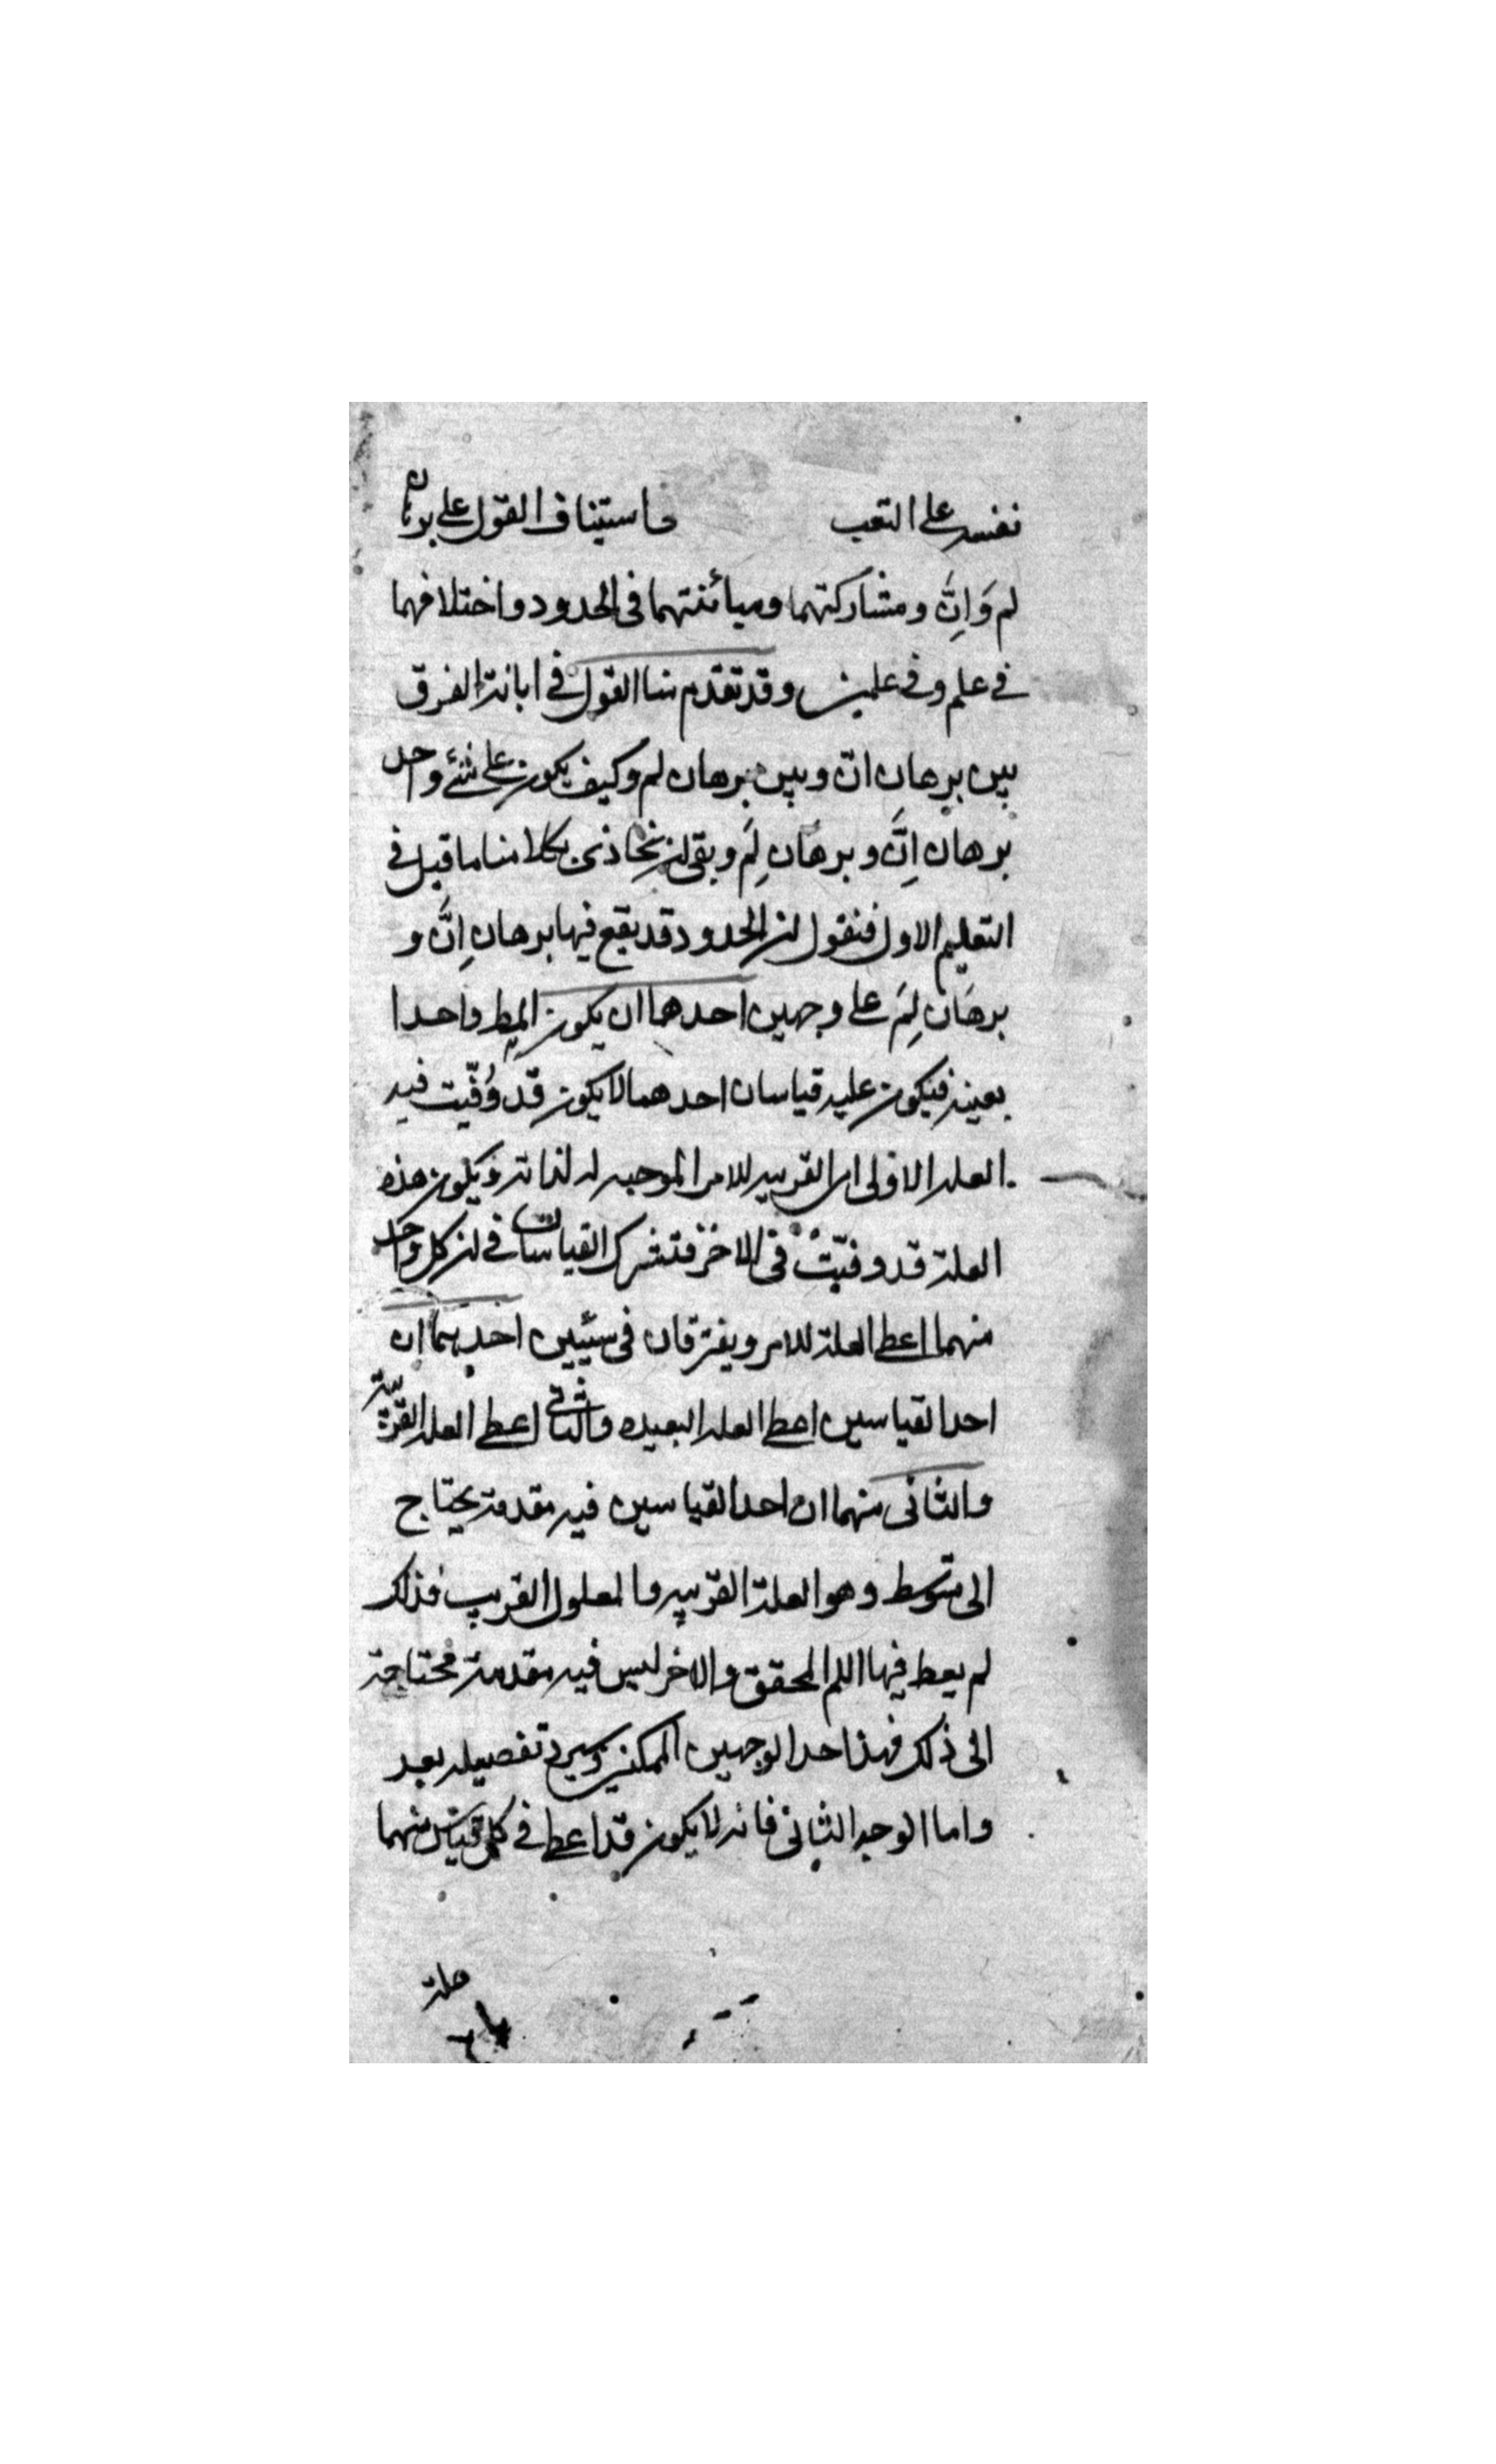 نفسه على التعب فى استيناف القول على برهان
لم وَاِنَّ ومشاركتهما ومبائنتهما فى الحدود واختلافهما
فى علم وفى علمين وقد تقدم منا القول فى ابانة الفرق
بين برهان انّ وبين برهان لم وكيف يكون على شئ واحد
برهان اِنَّ وبرهان لِمَ وبقى ان نحاذى بكلامنا ما قيل فى
التعليم الاول فنقول ان الحدود قد يقع فيها برهان اِنَّ و
برهَان لِمَ على وجهين احدهما ان يكون المط واحدا
بعينه فيكون عليه قياسان احدهما لا يكون قد وُفّيت فيه
العله الاولى اى القريبه للامر الموجبه له لذاته ويكون هذه
العلة قد وفيّتْ فى الاخر فتشرك القياسات فى ان كل واحد
منهما اعطى العلة للامر ويفترقان فى شيئين احديهما ان
احد القياسين اعطى العله البعيده والثانى اعطى العله القريبة
والثانى منهما ان احد القياسين فيه مقدمة يحتاج
الى متوسط وهو العلة القريبه والمعلول القريب فذلك
لم يعط فيها اللم المحقق والاخر ليس فيه مقدمة محتاجة
الى ذلك فهذا احد الوجهين الممكنين وسيرد تفصيله بعد
واما الوجه الثانى فانه لا يكون قد اعطى فى كل قياس منهما
علة